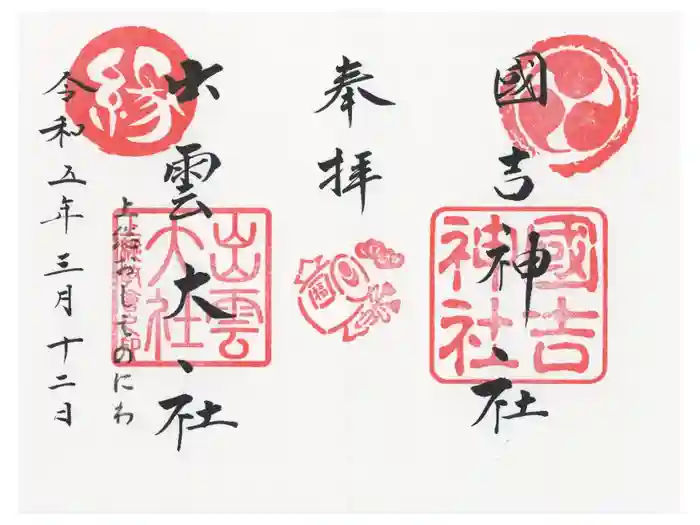 國吉神社
國吉
神社
奉拝
出雲大社
縁
出雲
大社
上総
のにわ
令和五年三月十二日